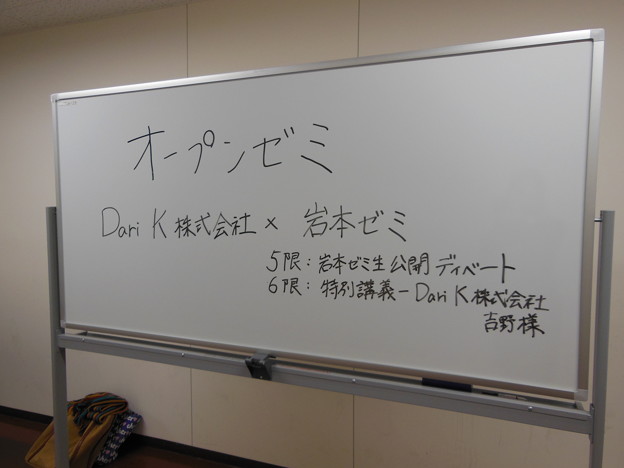 オープンゼミ
Dari K 株式会社 × 岩本ゼミ
5限：岩本ゼミ生公開ディベート
6限：特別講義－Dari K株式会社
吉野様